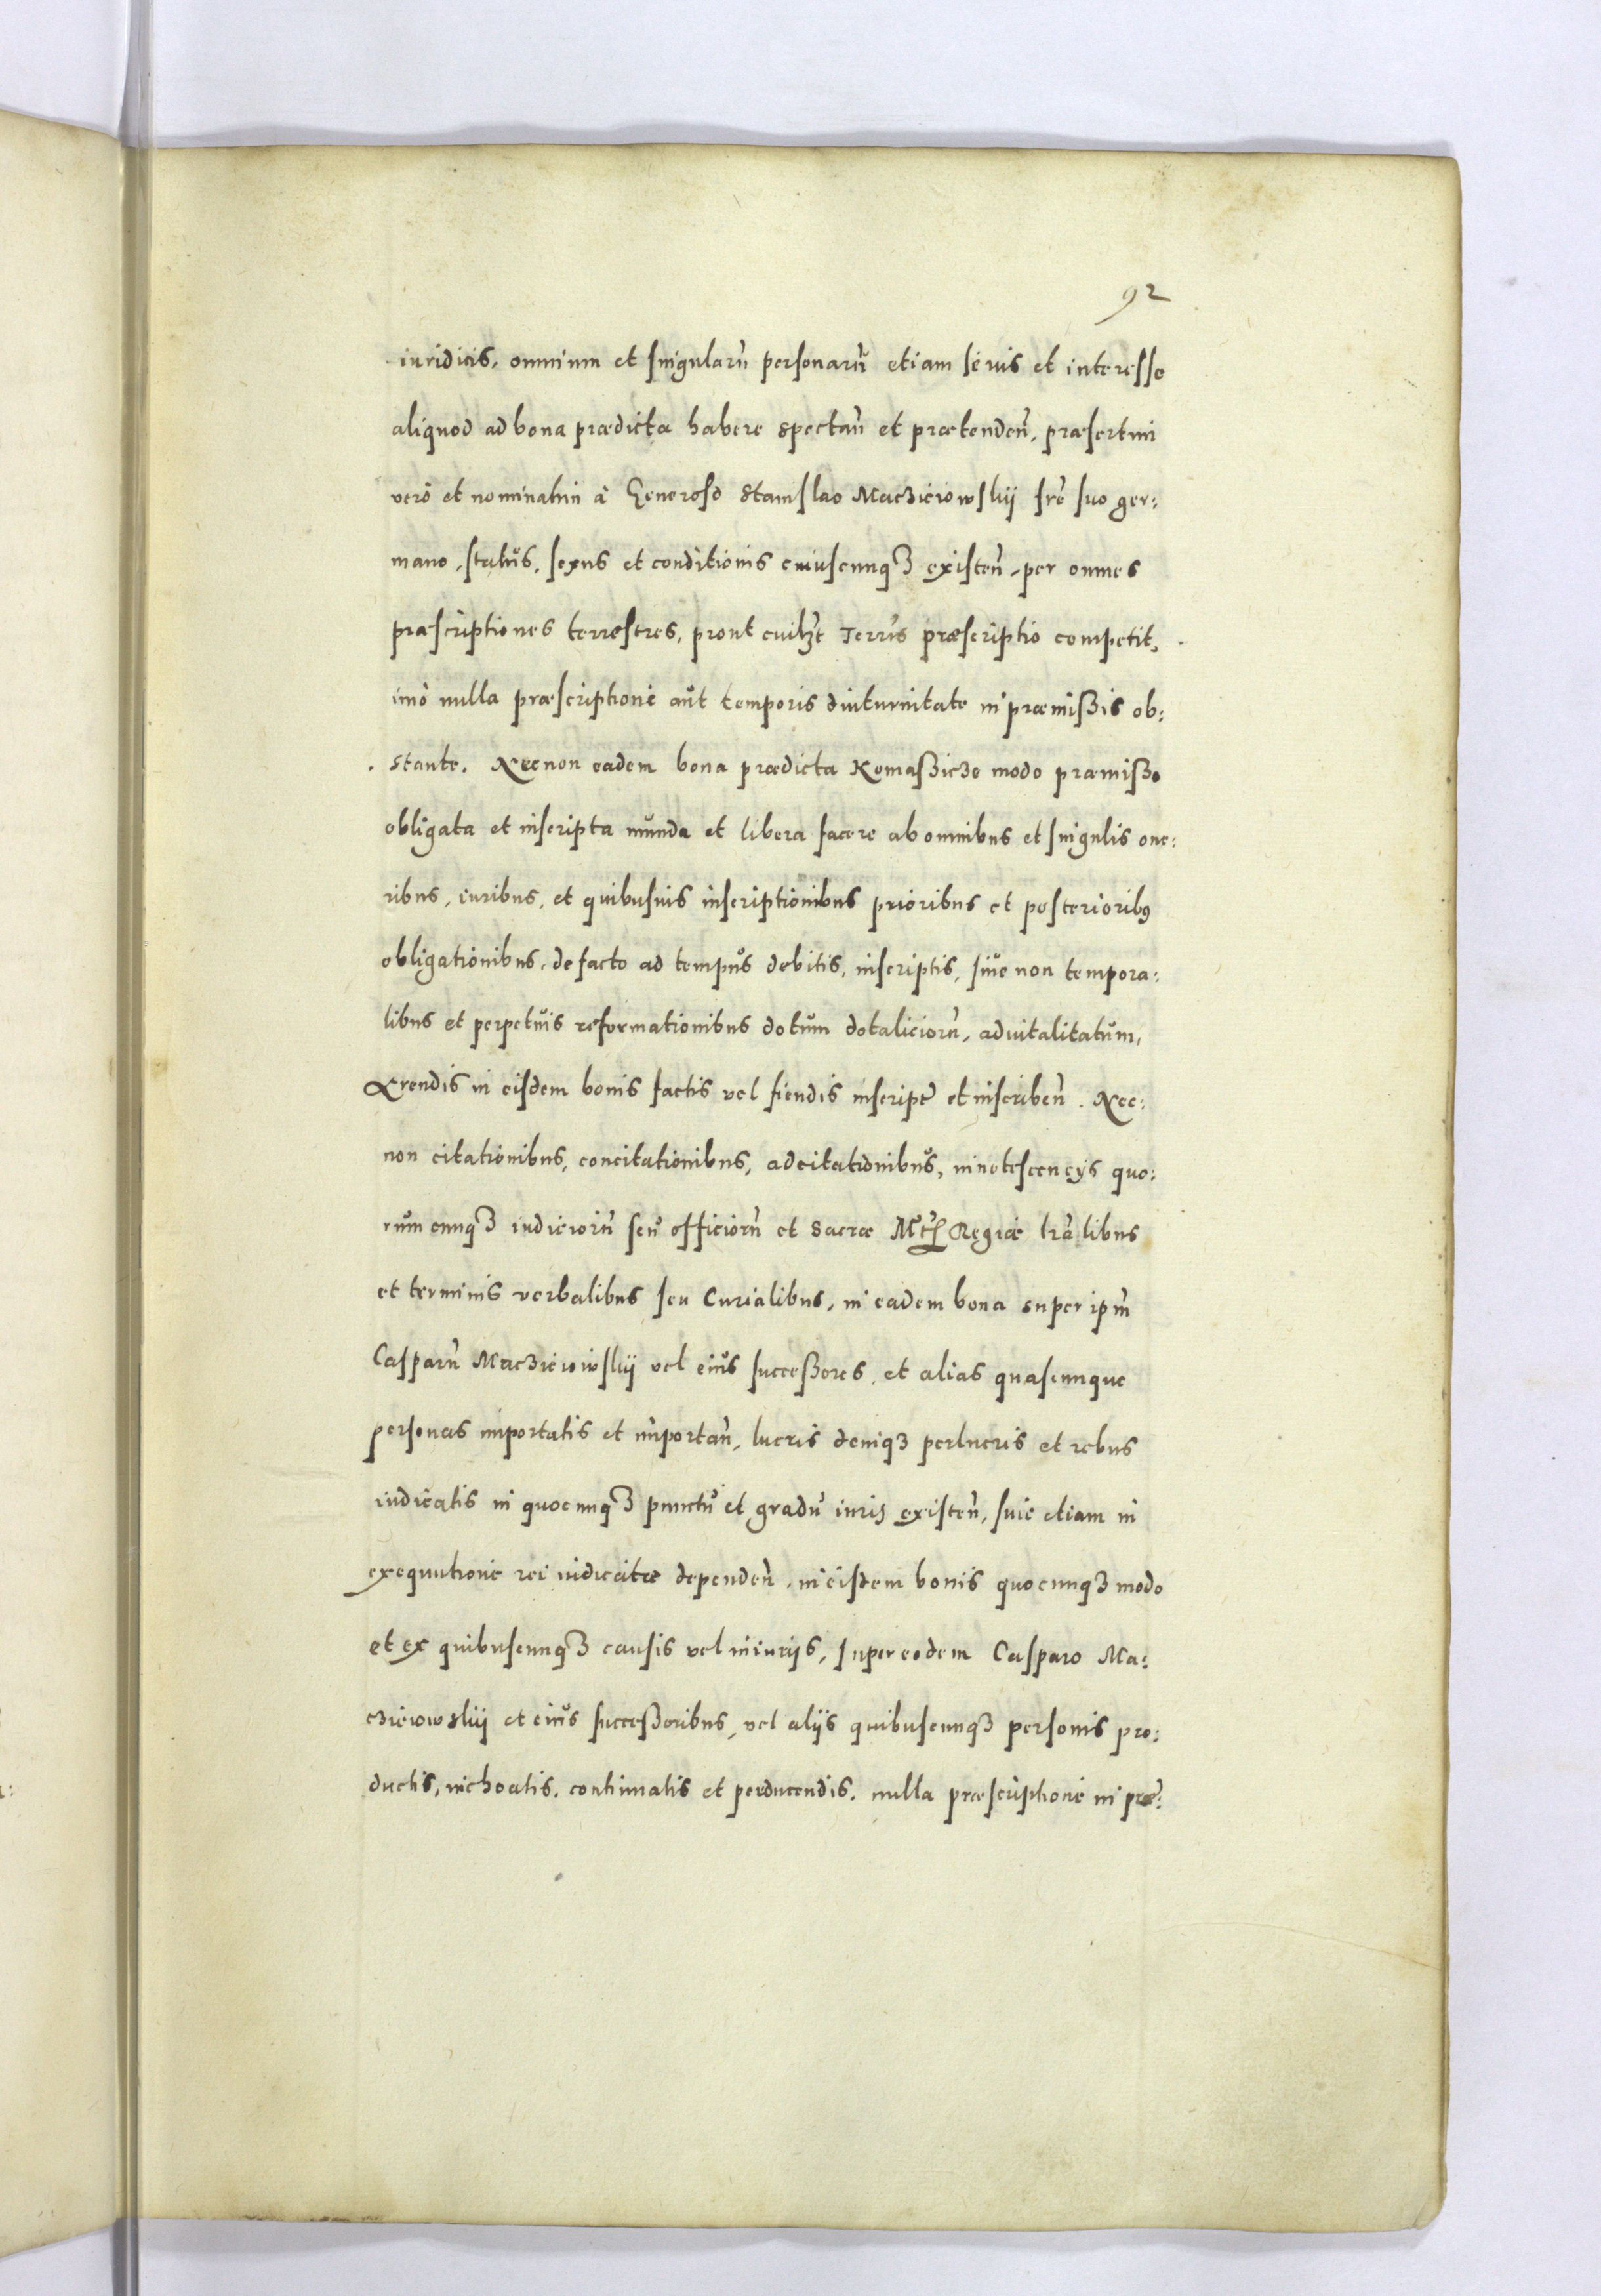 92
iuridicis, omnium et singularũ personarũ etiam se ius et interesse
aliquod ad bona prædicta habere spectañ et prætendeñ, præsertim
verò et nominatim à Generoso Stanislao Maczieiowskij fr̃e suo ger:
mano, statũs, sexus et conditionis cuiuscunqȝ existeñ, per omnes
præscriptiones terrestres, prout Terr̃is præscriptio competit,
imò nulla præscriptione aũt temporis diuturnitate in præmißis ob:
stante. Necnon eadem bona prædicta Komaßicze modo præmißo
obligata et inscripta mũnda et libera facere ab omnibus et singulis one:
ribus, iuribus, et quibusuis inscriptionibus prioribus et posterioribꝰ
obligationibus, de facto ad tempũs debitis, inscriptis, siũe non tempora:
libus et perpetũis reformationibus dotũm dotaliciorũ, aduitalitatũm,
Arendis in eisdem bonis factis vel fiendis inscript̃ et inscribeñ. Nec:
non citationibus, concitationibus, adcitationibũs, innotescencijs quo:
rũmcunqȝ iudiciorũ seũ officiorũ et Sacræ Mt̃is Regiæ lr̃alibus
et terminis verbalibus seu Curialibus, in eadem bona super ip̃m
Casparũ Macziewiowskij vel eiũs succeßores, et alias quascunque
personas importatis et importañ, lucris deniqȝ perlucris et rebus
iudicatis in quocunqȝ punctũ et gradũ iuris existeñ, siue etiam in
exequutione rei iudicatæ dependeñ, in eisdem bonis quocunqȝ modo
et ex quibuscunqȝ causis vel iniurijs, super eodem Casparo Ma:
cziewowskij et eiũs succeßoribus, vel alijs quibuscunqȝ personis pro:
ductis, inchoatis, continuatis et perducendis, nulla præscriptione in præ: